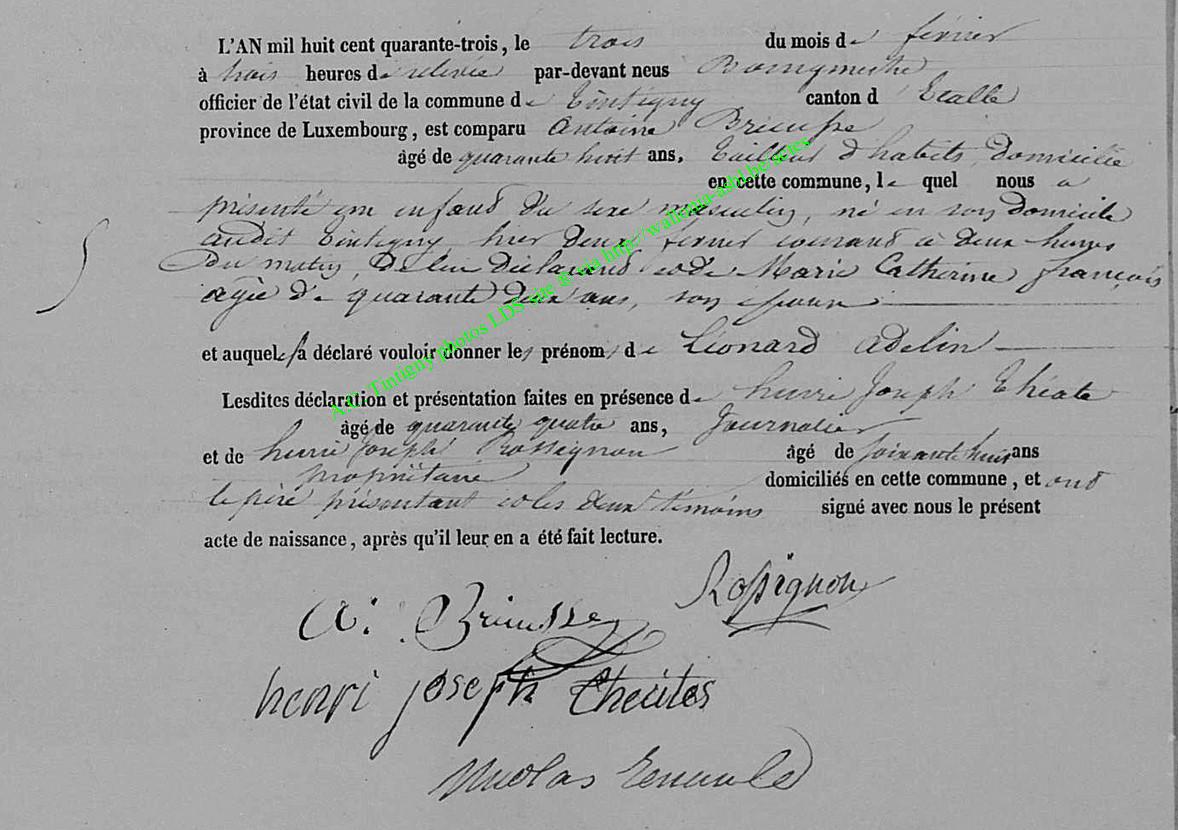 L'AN mil huit cent quarante-trois, le trois du mois de février
à trois heures de relevée par-devant nous Bourgmestre
officier de l'état civil de la commune de Tintigny canton d' Etalle
province de Luxembourg, est comparu Antoine
âgé de quarante huit ans, tailleur d'habits, domicilié
en cette commune, le quel nous a
présenté un enfant du sexe masculin, né en son domicile
audit Tintigny, hier deux février courant à deux heures
du matin, de lui déclarant et de Marie Catherine françois
agée de quarante deux ans, son épouse
et auquel il a déclaré vouloir donner les prénoms de Léonard adelin
Lesdites déclaration et présentation faites en présence de henri Joseph
âgé de quarante quatre ans, Journalier
et de henri Joseph Rossignon âgé de soixante huit ans
propriétaire domiciliés en cette commune, et ont
le père présentant et les deux témoins signé avec nous le présent
acte de naissance, après qu'il leur en a été fait lecture.
Rossignon
A.
henri joseph
Nicolas
A.C. Tintigny photos LDS site g via http://wallonia-asbl.be/actes